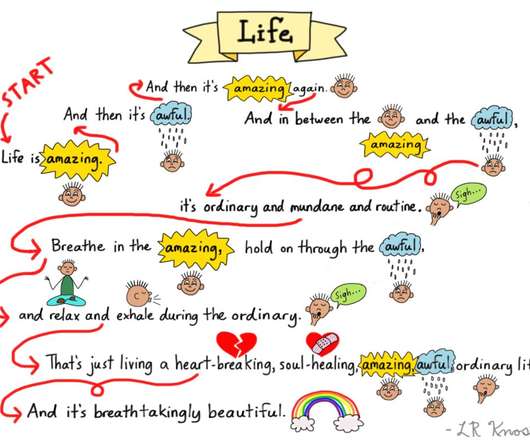 Life
START
Life is amazing.
And then it's awful.
And then it's amazing again.
And in between the amazing and the awful,
it's ordinary and mundane and routine.
Sigh...
Breathe in the amazing, hold on through the awful,
and relax and exhale during the ordinary.
Sigh...
That's just living a heart-breaking, soul-healing, amazing, awful ordinary
And it's breathtakingly beautiful.
- LR